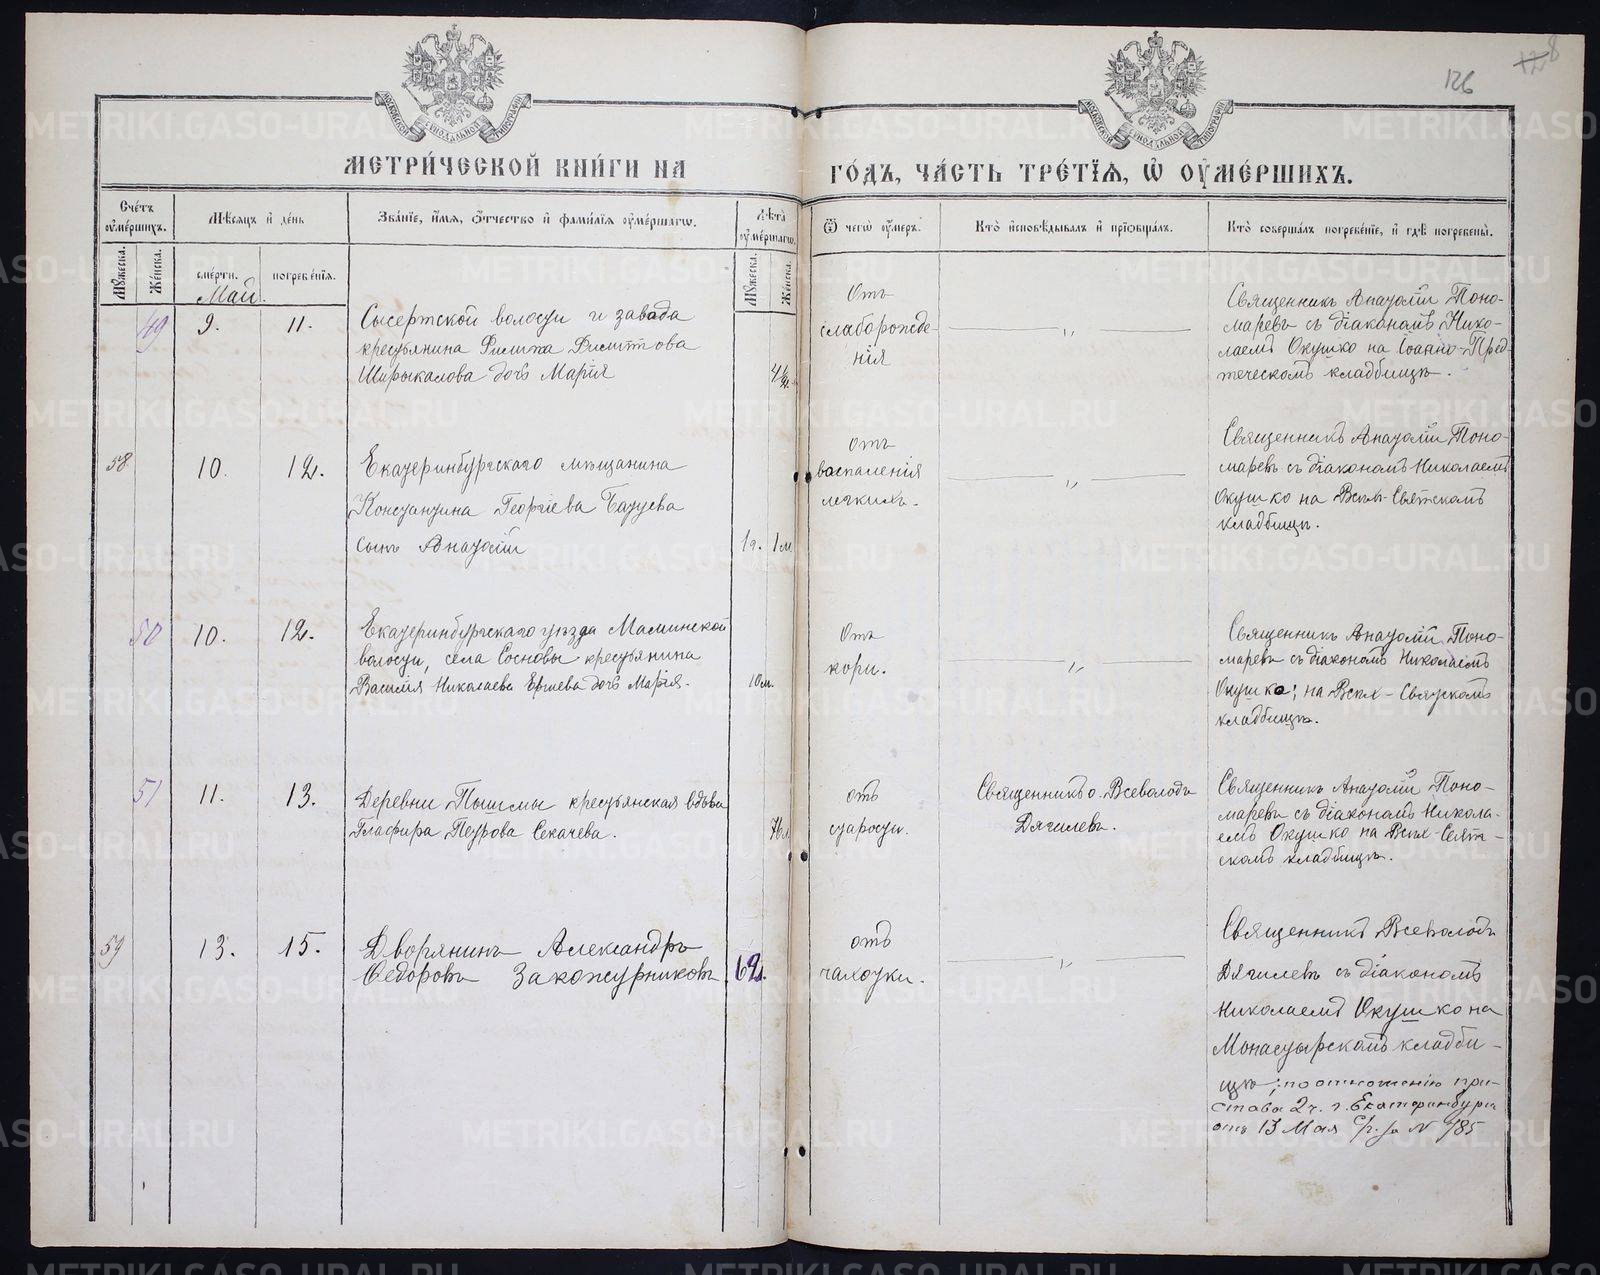 126
МЕТРИ́ЧЕСКОЙ КНИ́ГИ НА
ГО́ДЪ, ЧА́СТЬ ТРЕ́ТІѦ, Ѡ ОУМЕ́РШИХЪ.
Счетъ оумершихъ.
Мѣсяцъ и день
Званіе, имя, отчество и фамилія оумершагѡ.
Лѣта оумершагѡ.
Ѿ чегѡ оумеръ.
Кто исповѣдывалъ и пріобщалъ.
Кто совершалъ погребеніе, и гдѣ погребены.
Мужеска.
Женска.
смерти.
погребенія.
Мужеска.
Женска.
Май.
49
9.
11.
Сысертской волости и завада
крестьянина Филипа Филиппова
Ширыкалова дочь Марія
Отъ
слаборожде-
нія
Священникъ Анатолій Поно-
маревъ съ діакономъ Нико-
лаемъ Окушко на Іоанно-Пред-
теческомъ кладбищѣ.
58
10.
12.
Екатеринбургскаго мѣщанина
Константина Георгіева Батуева
сынъ Анатолій
1г. 1м.
отъ
васпаленія
легкихъ.
Священникъ Анатолій Поно-
маревъ съ діакономъ Николаемъ
Окушко на Всѣх-Святскомъ
кладбищѣ.
50
10.
12.
Екатеринбургскаго уѣзда Маминской
волости, села Сосновы крестьянина
Василія Николаева Ершева дочь Марія.
10м.
Отъ
кори.
Священникъ Анатолій Поно-
маревъ съ діакономъ Николаемъ
Окушко; на Всѣх-Святскомъ
кладбищѣ.
51
11.
13.
Деревни Пышмы крестьянская вдова
Глафира Петрова Секачева.
отъ
старости.
Священникъ о. Всеволодъ
Дягилевъ.
Священникъ Анатолій Поно-
маревъ съ діакономъ Никола-
емъ Окушко на Всѣх-Свят-
скомъ кладбищѣ.
59
13.
15.
Дворянинъ Александръ
Ѳедоровъ Закожурниковъ
62л.
отъ
чахотки.
Священникъ Всеволодъ
Дягилевъ съ діакономъ
Николаемъ Окушко на
Монастырскомъ кладби-
щѣ; по отношенію при-
става 2ч. г. Екатеринбурга
отъ 13 Мая с/г. за №785
METRIKI.GASO-URAL.RU